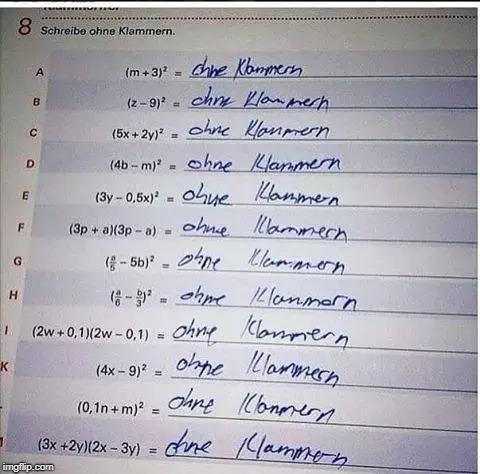 8 Schreibe ohne Klammern.
A (m + 3)² = ohne Klammern
B (z – 9)² = ohne Klammern
C (5x + 2y)² = ohne Klammern
D (4b – m)² = ohne Klammern
E (3y – 0,5x)² = ohne Klammern
F (3p + a)(3p – a) = ohne Klammern
G (a/5 – 5b)² = ohne Klammern
H (a/6 – b/3)² = ohne Klammern
I (2w + 0,1)(2w – 0,1) = ohne Klammern
K (4x – 9)² = ohne Klammern
(0,1n + m)² = ohne Klammern
(3x + 2y)(2x – 3y) = ohne Klammern
imgflip.com